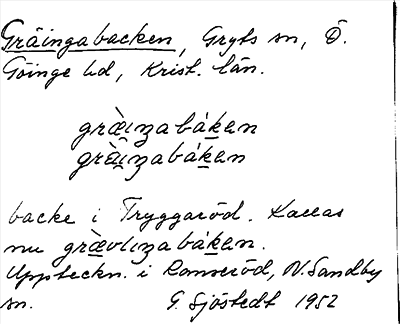 Gräingabacken, Gryts sn, Ö.
Göinge hd, Krist. län.
græ̀ıṇzabák̲ən
grà̤ıṇzabák̲ən
backe i Tryggaröd. Kallas
nu græ̀vlıṇzabák̲ən.
Uppteckn. i Romseröd, N. Sandby
sn. G. Sjöstedt 1952